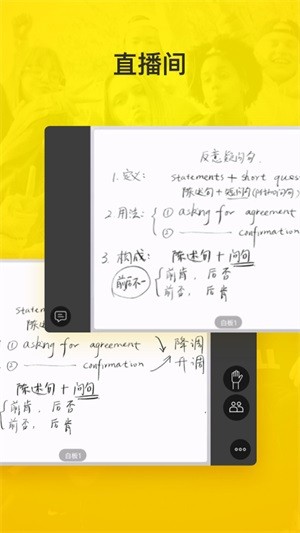 直播间
反意疑问句
1. 定义: statements + short ques
陈述句 + 短问句(附加问句)
2. 用法: { ① asking for agreement
② —— confirmation
3. 构成: 陈述句 + 问句
前后不一 { 前肯, 后否
前否, 后肯
白板1
statem
陈述
① asking for agreement ↘ 降调
② —— confirmation ↗ 升调
陈述句 + 问句
{ 前肯, 后否
前否, 后肯
白板1